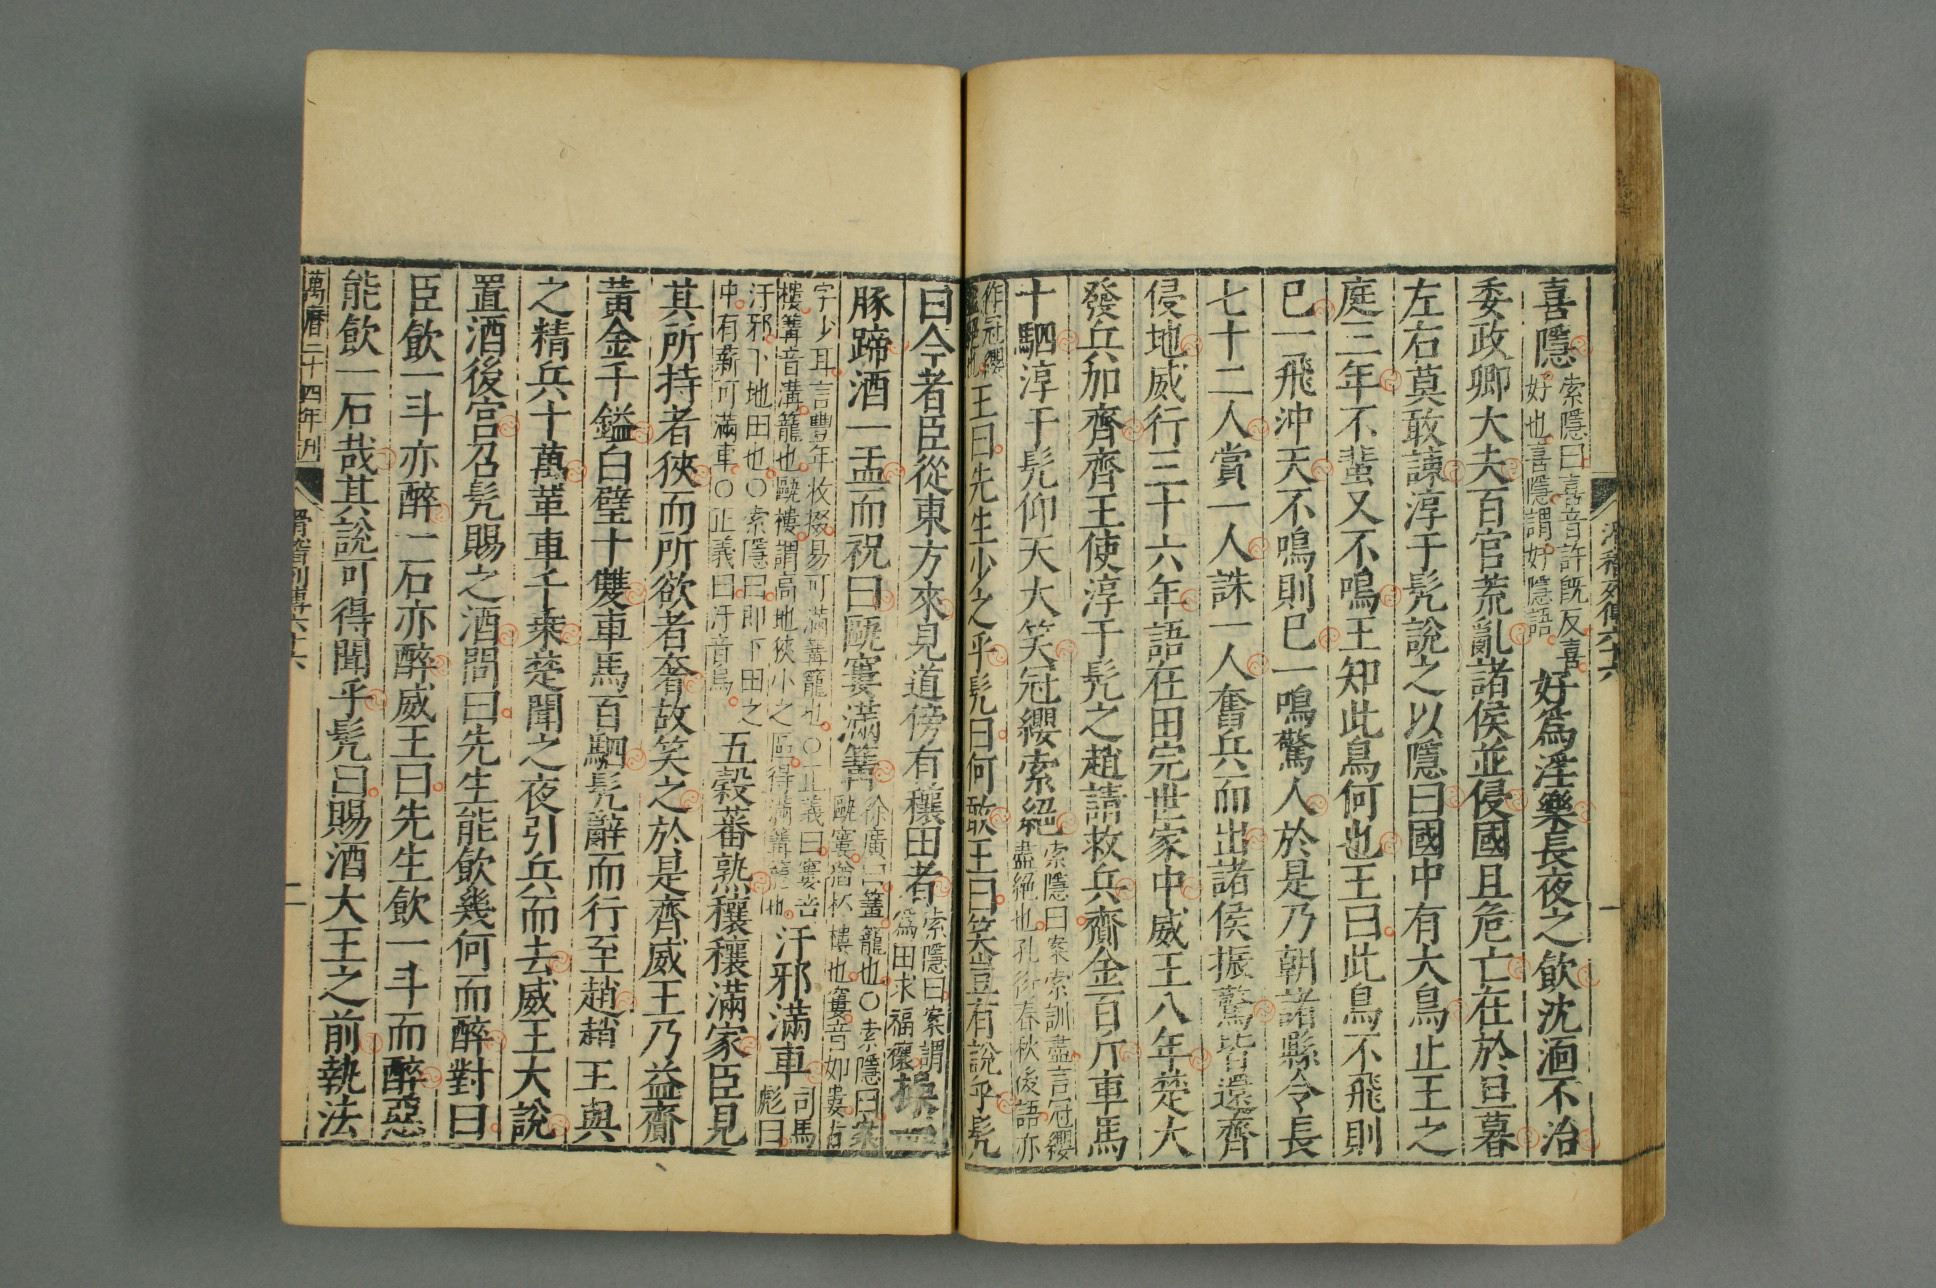 滑稽列傳六十六
一
喜隱索隱曰喜音許既反喜
好也喜隱謂好隱語好爲淫樂長夜之飲沈湎不治
委政卿大夫百官荒亂諸侯並侵國且危亡在於旦暮
左右莫敢諫淳于髡說之以隱曰國中有大鳥止王之
庭三年不蜚又不鳴王知此鳥何也王曰此鳥不飛則
已一飛沖天不鳴則已一鳴驚人於是乃朝諸縣令長
七十二人賞一人誅一人奮兵而出諸侯振驚皆還齊
侵地威行三十六年語在田完世家中威王八年楚大
發兵加齊齊王使淳于髡之趙請救兵齎金百斤車馬
十駟淳于髡仰天大笑冠纓索絕索隱曰案索訓盡言冠纓
盡絕也孔衍春秋後語亦
作冠纓
盡絕也王曰先生少之乎髡曰何敢王曰笑豈有說乎髡
曰今者臣從東方來見道傍有穰田者索隱曰案謂
爲田求福穰操一
豚蹄酒一盂而祝曰甌窶滿篝徐廣曰篝籠也○索隱曰案
甌窶猶杯樓也窶音如婁古
字少耳言豐年收掇易可滿篝籠也○正義曰窶音
樓篝音溝籠也甌樓謂高地狹小之區得滿篝籠也汙邪滿車司馬
彪曰
汙邪下地田也○索隱曰即下田之
中有薪可滿車○正義曰汙音烏五穀蕃熟穰穰滿家臣見
其所持者狹而所欲者奢故笑之於是齊威王乃益齎
黃金千鎰白璧十雙車馬百駟髡辭而行至趙趙王與
之精兵十萬革車千乘楚聞之夜引兵而去威王大說
置酒後宮召髡賜之酒問曰先生能飲幾何而醉對曰
臣飲一斗亦醉一石亦醉威王曰先生飲一斗而醉惡
能飲一石哉其說可得聞乎髡曰賜酒大王之前執法
萬曆二十四年刊
滑稽列傳六十六
二